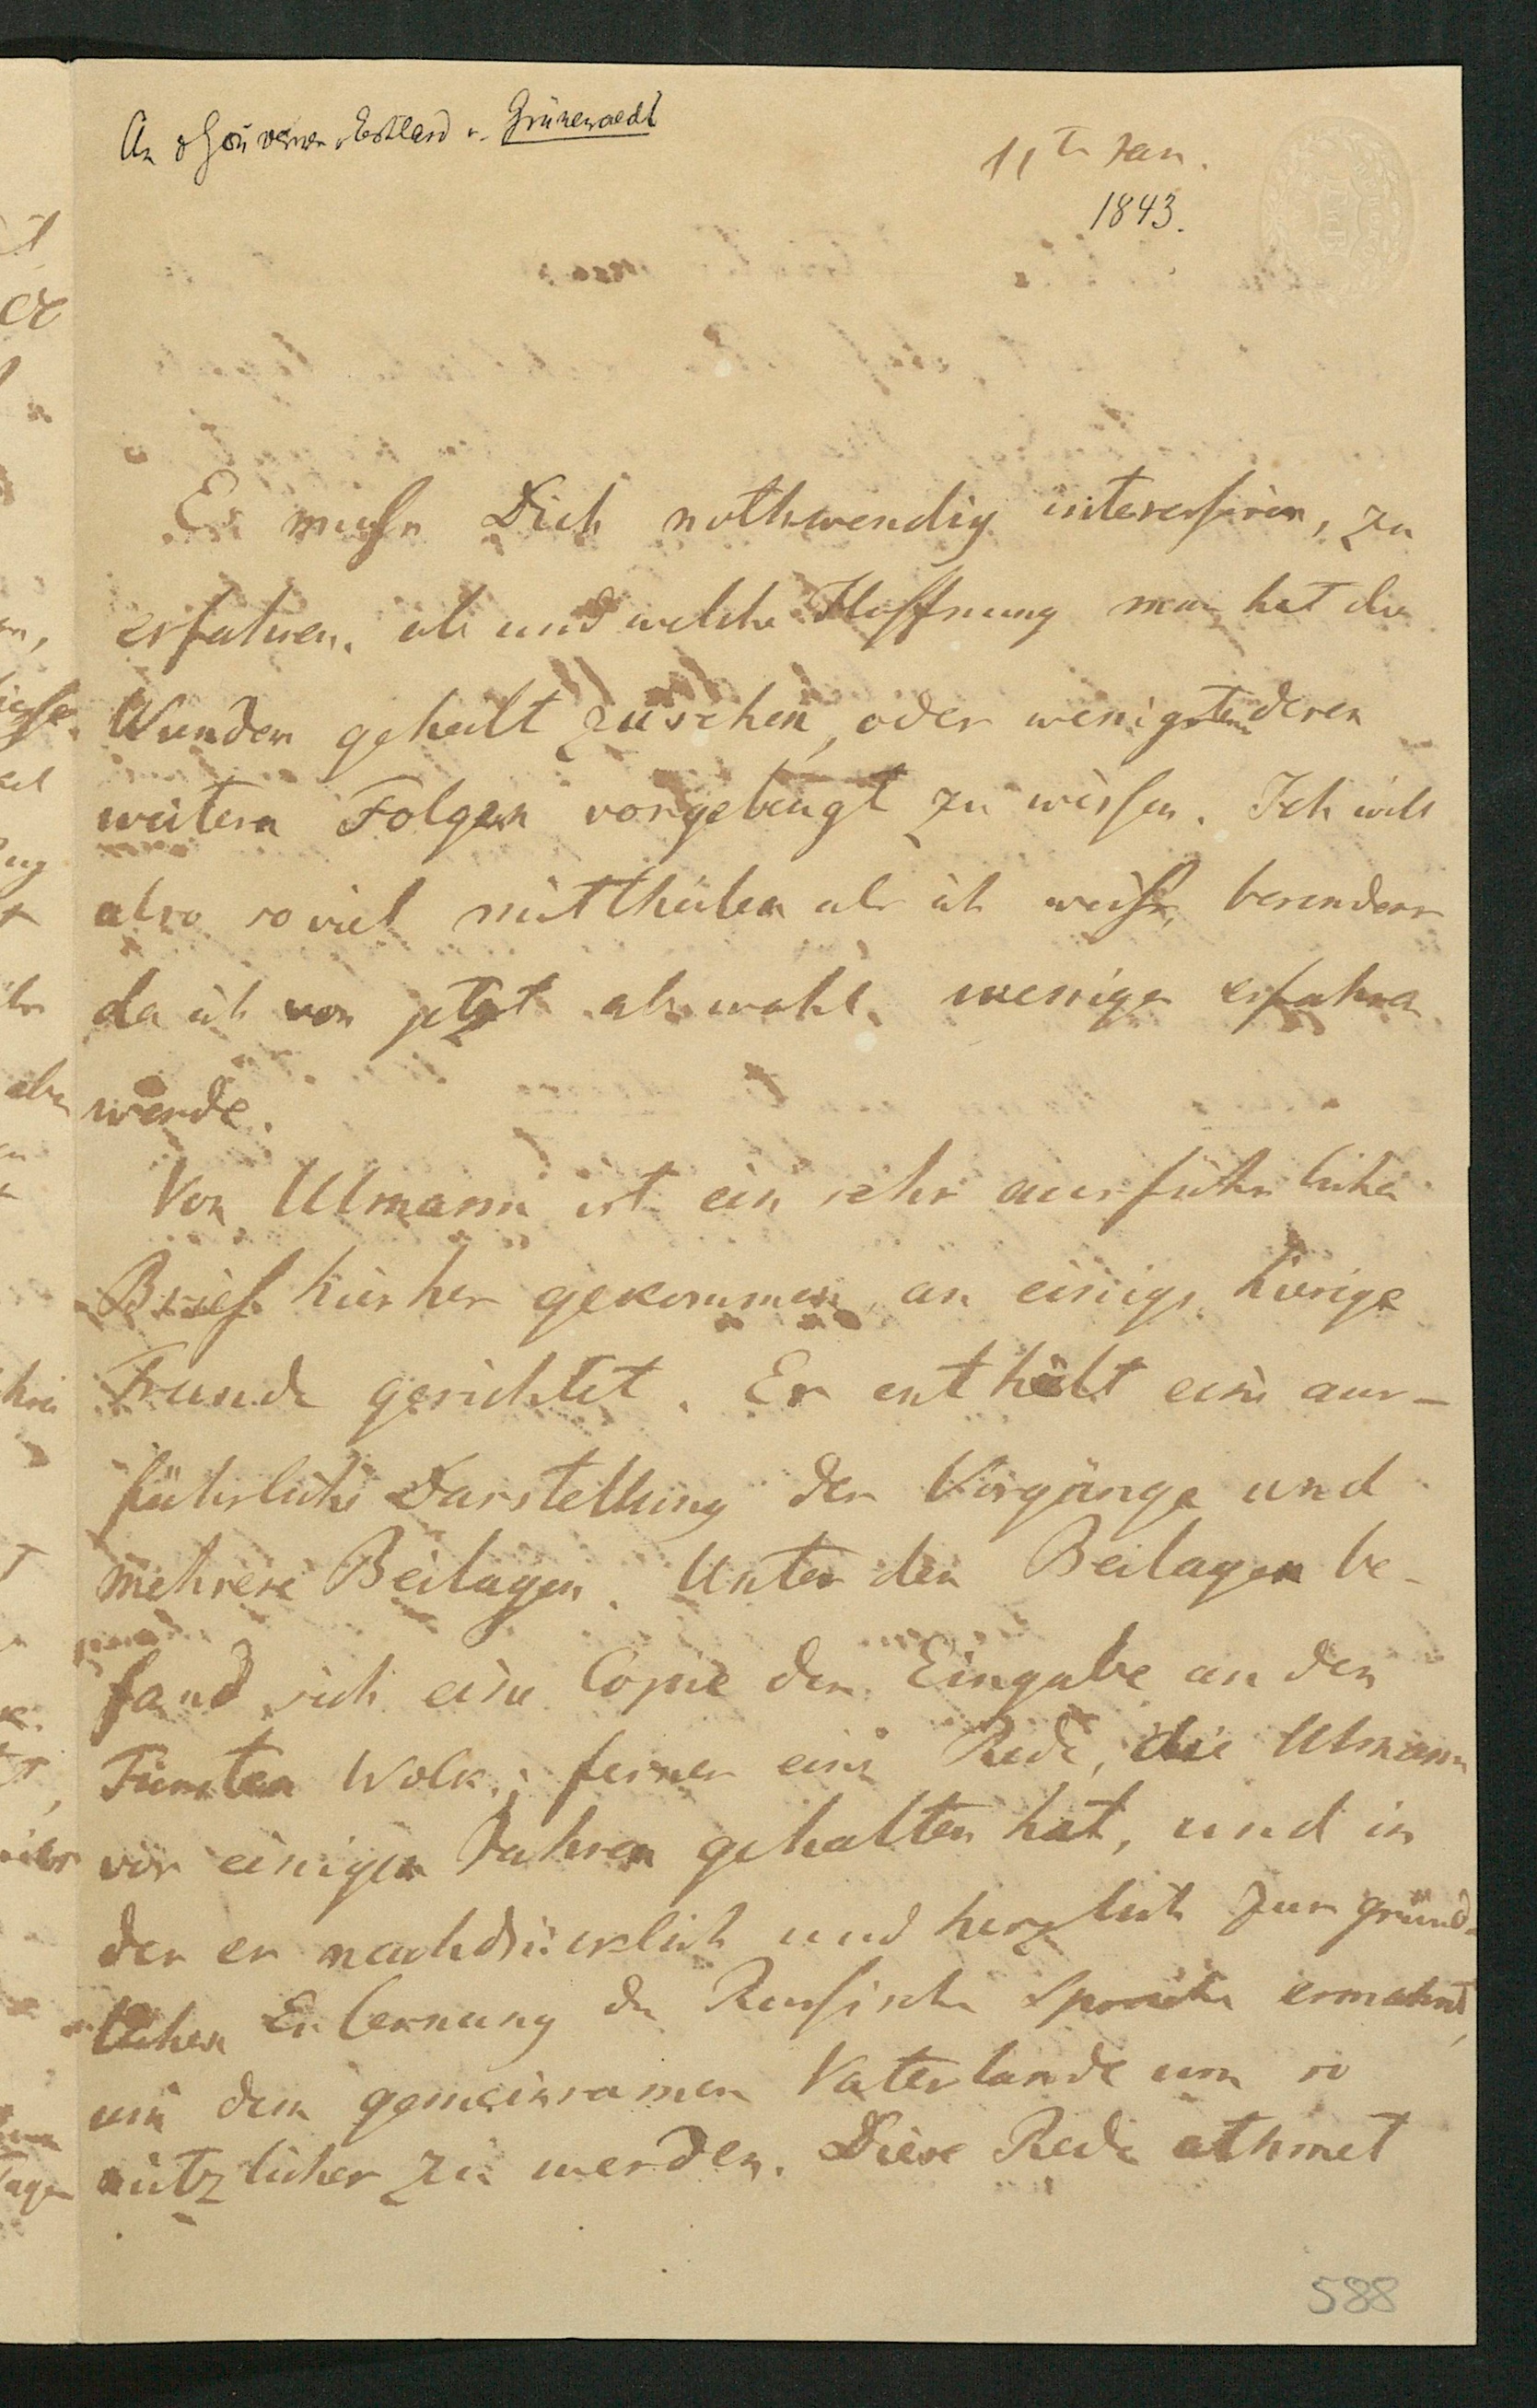 An d Gouverneur v Estland v. Grünewaldt
11ten Jan.
1843.
Es muss Dich nothwendig interessiren, zu
erfahren, ob und welche Hoffnung man hat die
Wunden geheilt zu sehen, oder wenigstens deren
weitern Folgen vorgebeugt zu wissen. Ich will
also so viel mittheilen als ich weiss, besonders
da ich von jetzt ab wohl weniger erfahren
werde.
Von Ulmann ist ein sehr ausführlicher
Brief hierher gekommen, an einige hiesige
Freunde gerichtet. Er enthält eine aus-
führliche Darstellung der Vorgänge und
mehrere Beilagen. Unter den Beilagen be-
fand sich eine Copie der Eingabe an den
Fürsten Wolk.; ferner eine Rede, die Ulmann
vor einigen Jahren gehalten hat, und in
der er nachdrücklich und herzlich zur gründ-
lichen Erlernung der Russischen Sprache ermahnt,
um dem gemeinsamen Vaterlande um so
nützlicher zu werden. Diese Rede athmet
588